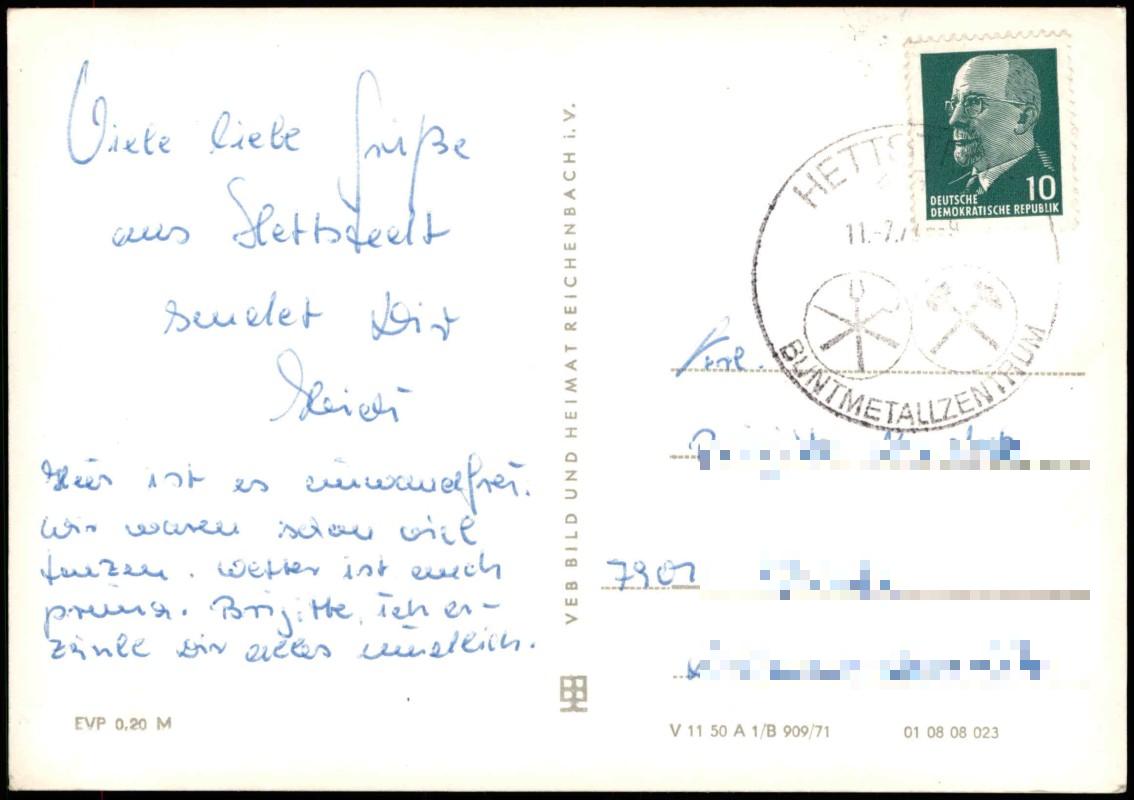 Viele liebe Grüße
aus Hettstedt
sendet Dir
Heidi
Hier ist es einwandfrei.
Wir waren schon viel
tanzen. Wetter ist auch
prima. Brigitte, ich er-
zähle Dir alles mündlich.
EVP 0,20 M
VEB BILD UND HEIMAT REICHENBACH i. V.
10
DEUTSCHE
DEMOKRATISCHE REPUBLIK
HETTST
11.-7.71--9
BUNTMETALLZENTRUM
Frl.
7901
V 11 50 A 1/B 909/71
01 08 08 023